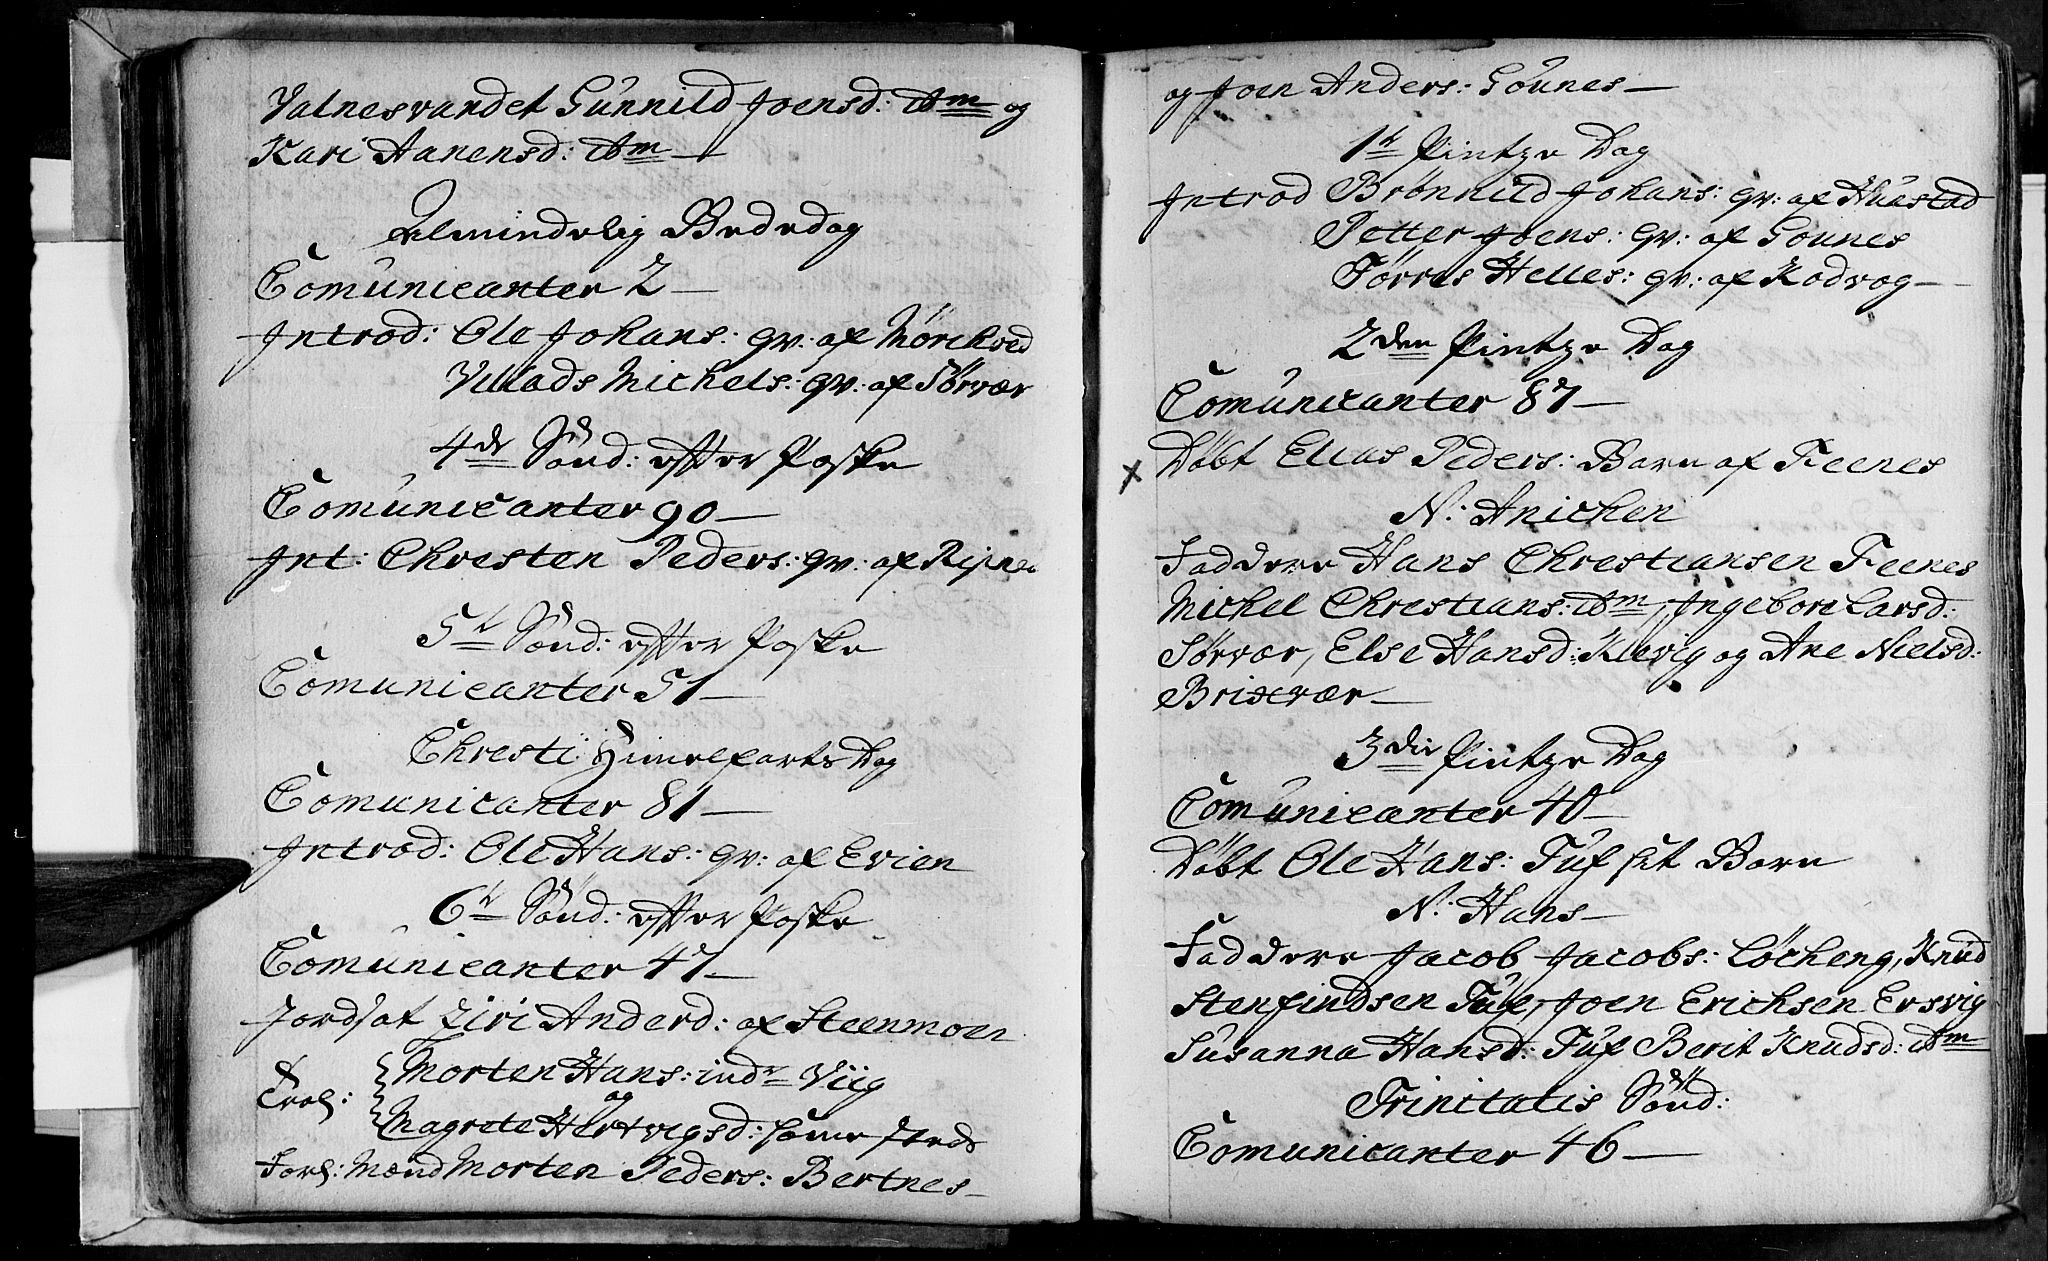 Valnesvandet Gunnild Joensd: ibm og
Kari Hanensd: ibm —
Almindelig Bededag
Comunicanter 2 —
Introd: Ole Johans: qv: af Mörchved
Villads Michels: qv: af Sörvær
4de Sönd: efter Paaske
Comunicanter 90 —
Int: Chresten Peders: qv: af
5te Sönd: efter Paske
Comunicanter 51 —
Christi Himelfarts Dag
Comunicanter 81 —
Introd: Ole Hans: qv: af Evien
6te Sönd: efter Paske
Comunicanter 47 —
Jordsat Ziri Anderd: af Steenmoen
Trol: Morten Hans: indr Viig
og
Magrete Hertvigsd: samesteds
Forl: Mænd Morten Peders: Bertnes —
og Joen Anders: Göunes —
1te Pintze Dag
Introd Brönnild Johans: qv: af Hustad
Petter Joens: qv: af Gounes
Törres Helles: qv: af Kodvog —
2den Pintze Dag
Comunicanter 87 —
x Döbt Elias Peders: Barn af Feenes
N: Anichen
Faddere Hans Chrestiansen Feenes
Michel Chrestians: ibm, Ingebore Larsd:
Sörvær, Else Hansd: Klevig og Ane Nielsd:
Brixvær —
3die Pintze Dag
Comunicanter 40 —
Döbt Ole Hans: Tuf sit Barn
N: Hans —
Faddere Jacob Jacobs: Löcheng, Knud
Stenfindsen Tuf, Joen Erichsen Ersvig
Susanna Hansd: Tuf Berit Knudsd: ibm
Trinitatis Sönd:
Comunicanter 46 —